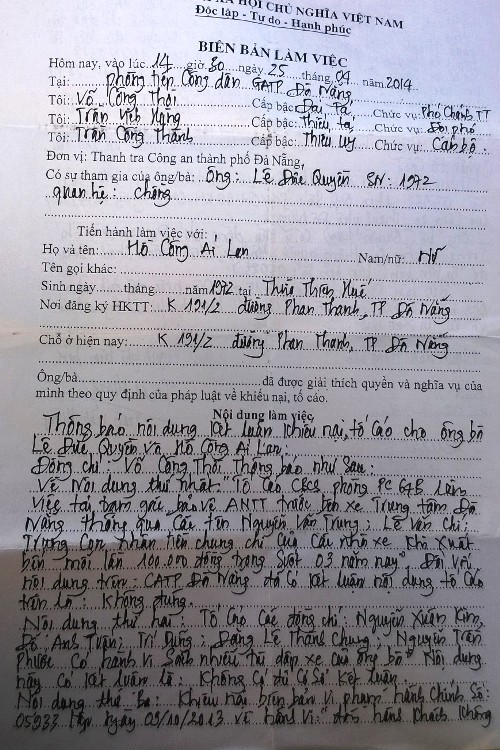 XÃ HỘI CHỦ NGHĨA VIỆT NAM
Độc lập - Tự do - Hạnh phúc
BIÊN BẢN LÀM VIỆC
Hôm nay, vào lúc 14 giờ 30 ngày 25 tháng 04 năm 2014
Tại: phòng tiếp Công dân CATP Đà Nẵng
Tôi: Võ Công Thôi Cấp bậc: Đại tá Chức vụ: Phó Chánh TT
Tôi: Trần Việt Cấp bậc: Thiếu tá Chức vụ: Đội phó
Tôi: Trần Công Thành Cấp bậc: Thiếu úy Chức vụ: Cán bộ.
Đơn vị: Thanh tra Công an thành phố Đà Nẵng,
Có sự tham gia của ông/bà: Ông: Lê Đức Quyền SN: 1972
quan hệ: chồng
Tiến hành làm việc với:
Họ và tên: Hồ Công Ai Lan Nam/nữ: Nữ
Tên gọi khác:
Sinh ngày tháng năm 1972 tại Thừa Thiên Huế
Nơi đăng ký HKTT: K 191/2 đường Phan Thanh, TP Đà Nẵng
Chỗ ở hiện nay: K 191/2 đường Phan Thanh, TP Đà Nẵng
Ông/bà đã được giải thích quyền và nghĩa vụ của
mình theo quy định của pháp luật về khiếu nại, tố cáo.
Nội dung làm việc
Thông báo nội dung kết luận khiếu nại, tố cáo cho ông bà
Lê Đức Quyền và Hồ Công Ai Lan:
Đồng chí: Võ Công Thôi thông báo như sau:
Về nội dung thứ nhất: "Tố cáo CBCS phòng PC64B làm
việc tại trạm gác bảo vệ ANTT trước bến xe Trung tâm Đà
Nẵng thông qua cậu tên Nguyễn Văn Trung; Lê Văn Chi;
Trung Con nhận tiền chung chi của các nhà xe khi xuất
bến mỗi lần 100.000 đồng trong suốt 03 năm nay". Đối với
nội dung trên: CATP Đà Nẵng đã có kết luận nội dung tố cáo
trên là: Không đúng.
Nội dung thứ hai: Tố cáo các đồng chí: Nguyễn Xuân Kim,
Đỗ Anh Tuấn; Trí Dũng; Đặng Lê Thành Chung; Nguyễn Trần
Phước có hành vi sách nhiễu trù dập xe của ông bà" Nội dung
này có kết luận là: Không có đủ cơ sở kết luận.
Nội dung thứ ba: Khiếu nại biên bản vi phạm hành chính số:
05933 lập ngày 09/10/2013 về hành vi: hành khách không